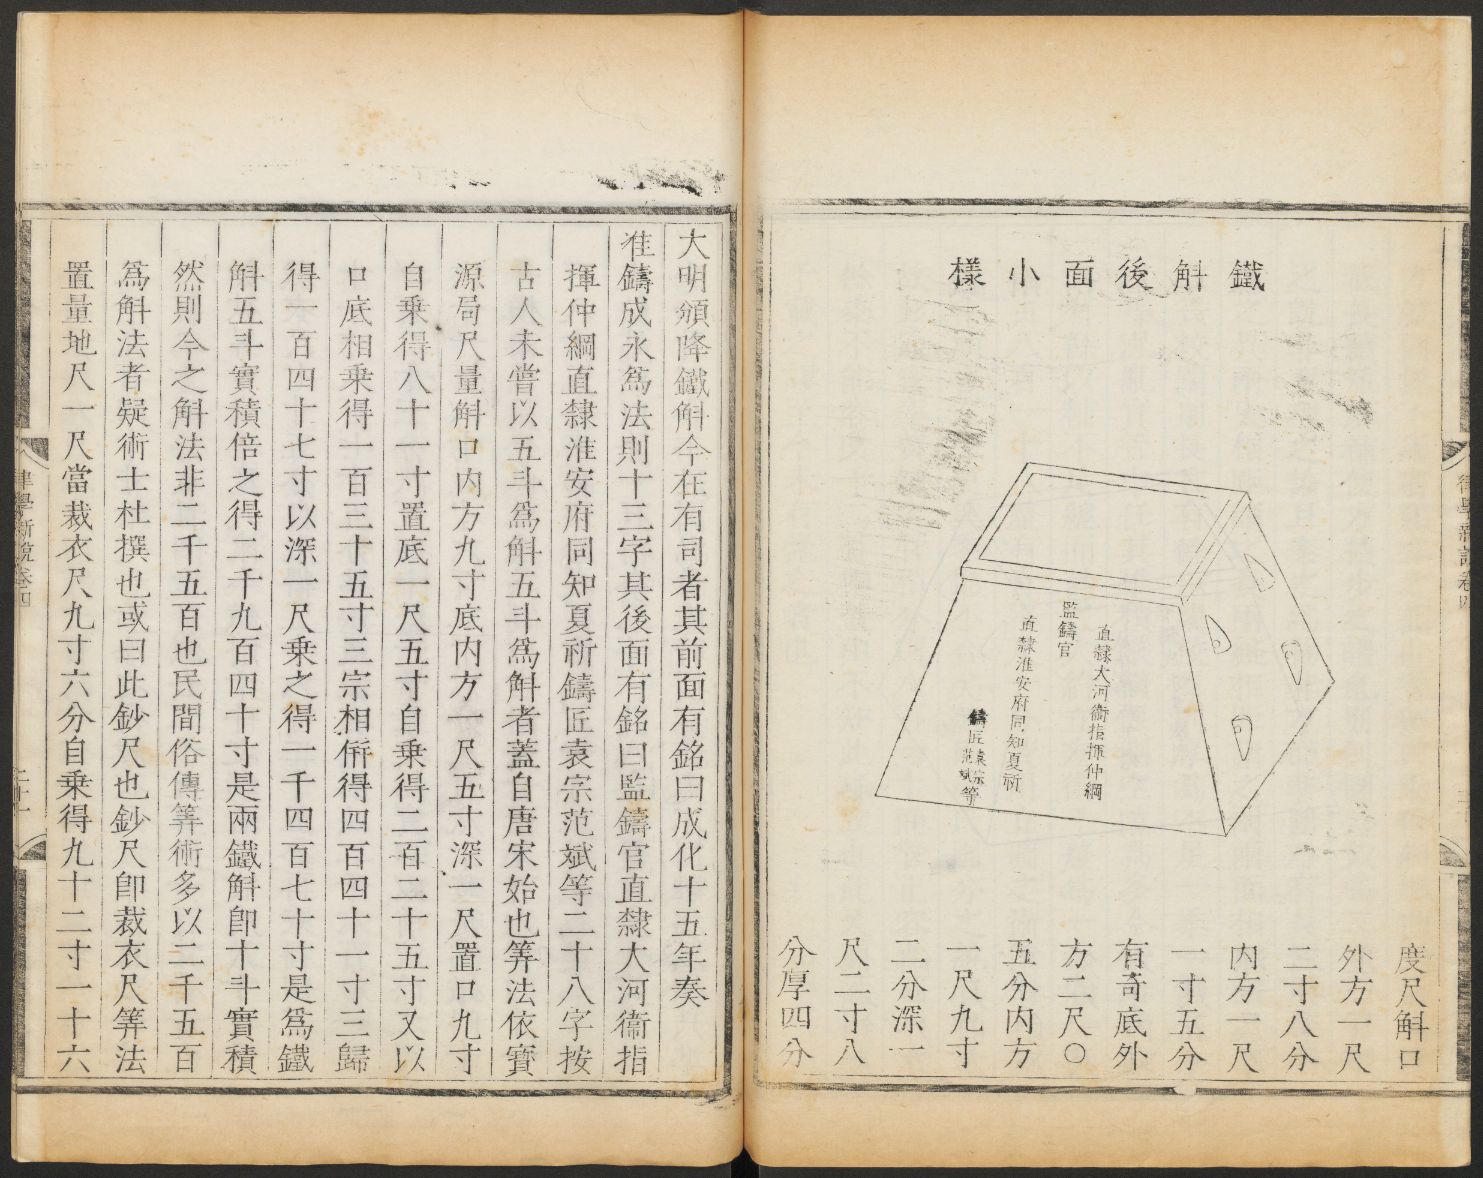 鐵斛後面小樣
直隸大河衞指揮仲綱
監鑄官
直隸淮安府同知夏祈
鑄匠袁宗范斌等
度尺斛口
外方一尺
二寸八分
內方一尺
一寸五分
有奇底外
方二尺〇
五分內方
一尺九寸
二分深一
尺二寸八
分厚四分
大明頒降鐵斛今在有司者其前面有銘曰成化十五年奏
准鑄成永爲法則十三字其後面有銘曰監鑄官直隸大河衞指
揮仲綱直隸淮安府同知夏祈鑄匠袁宗范斌等二十八字按
古人未嘗以五斗爲斛五斗爲斛者蓋自唐宋始也筭法依寳
源局尺量斛口內方九寸底內方一尺五寸深一尺置口九寸
自乗得八十一寸置底一尺五寸自乗得二百二十五寸又以
口底相乗得一百三十五寸三宗相倂得四百四十一寸三歸
得一百四十七寸以深一尺乗之得一千四百七十寸是爲鐵
斛五斗實積倍之得二千九百四十寸是兩鐵斛卽十斗實積
然則今之斛法非二千五百也民間俗傳筭術多以二千五百
爲斛法者疑術士杜撰也或曰此鈔尺也鈔尺卽裁衣尺筭法
置量地尺一尺當裁衣尺九寸六分自乗得九十二寸一十六
律學新說卷四